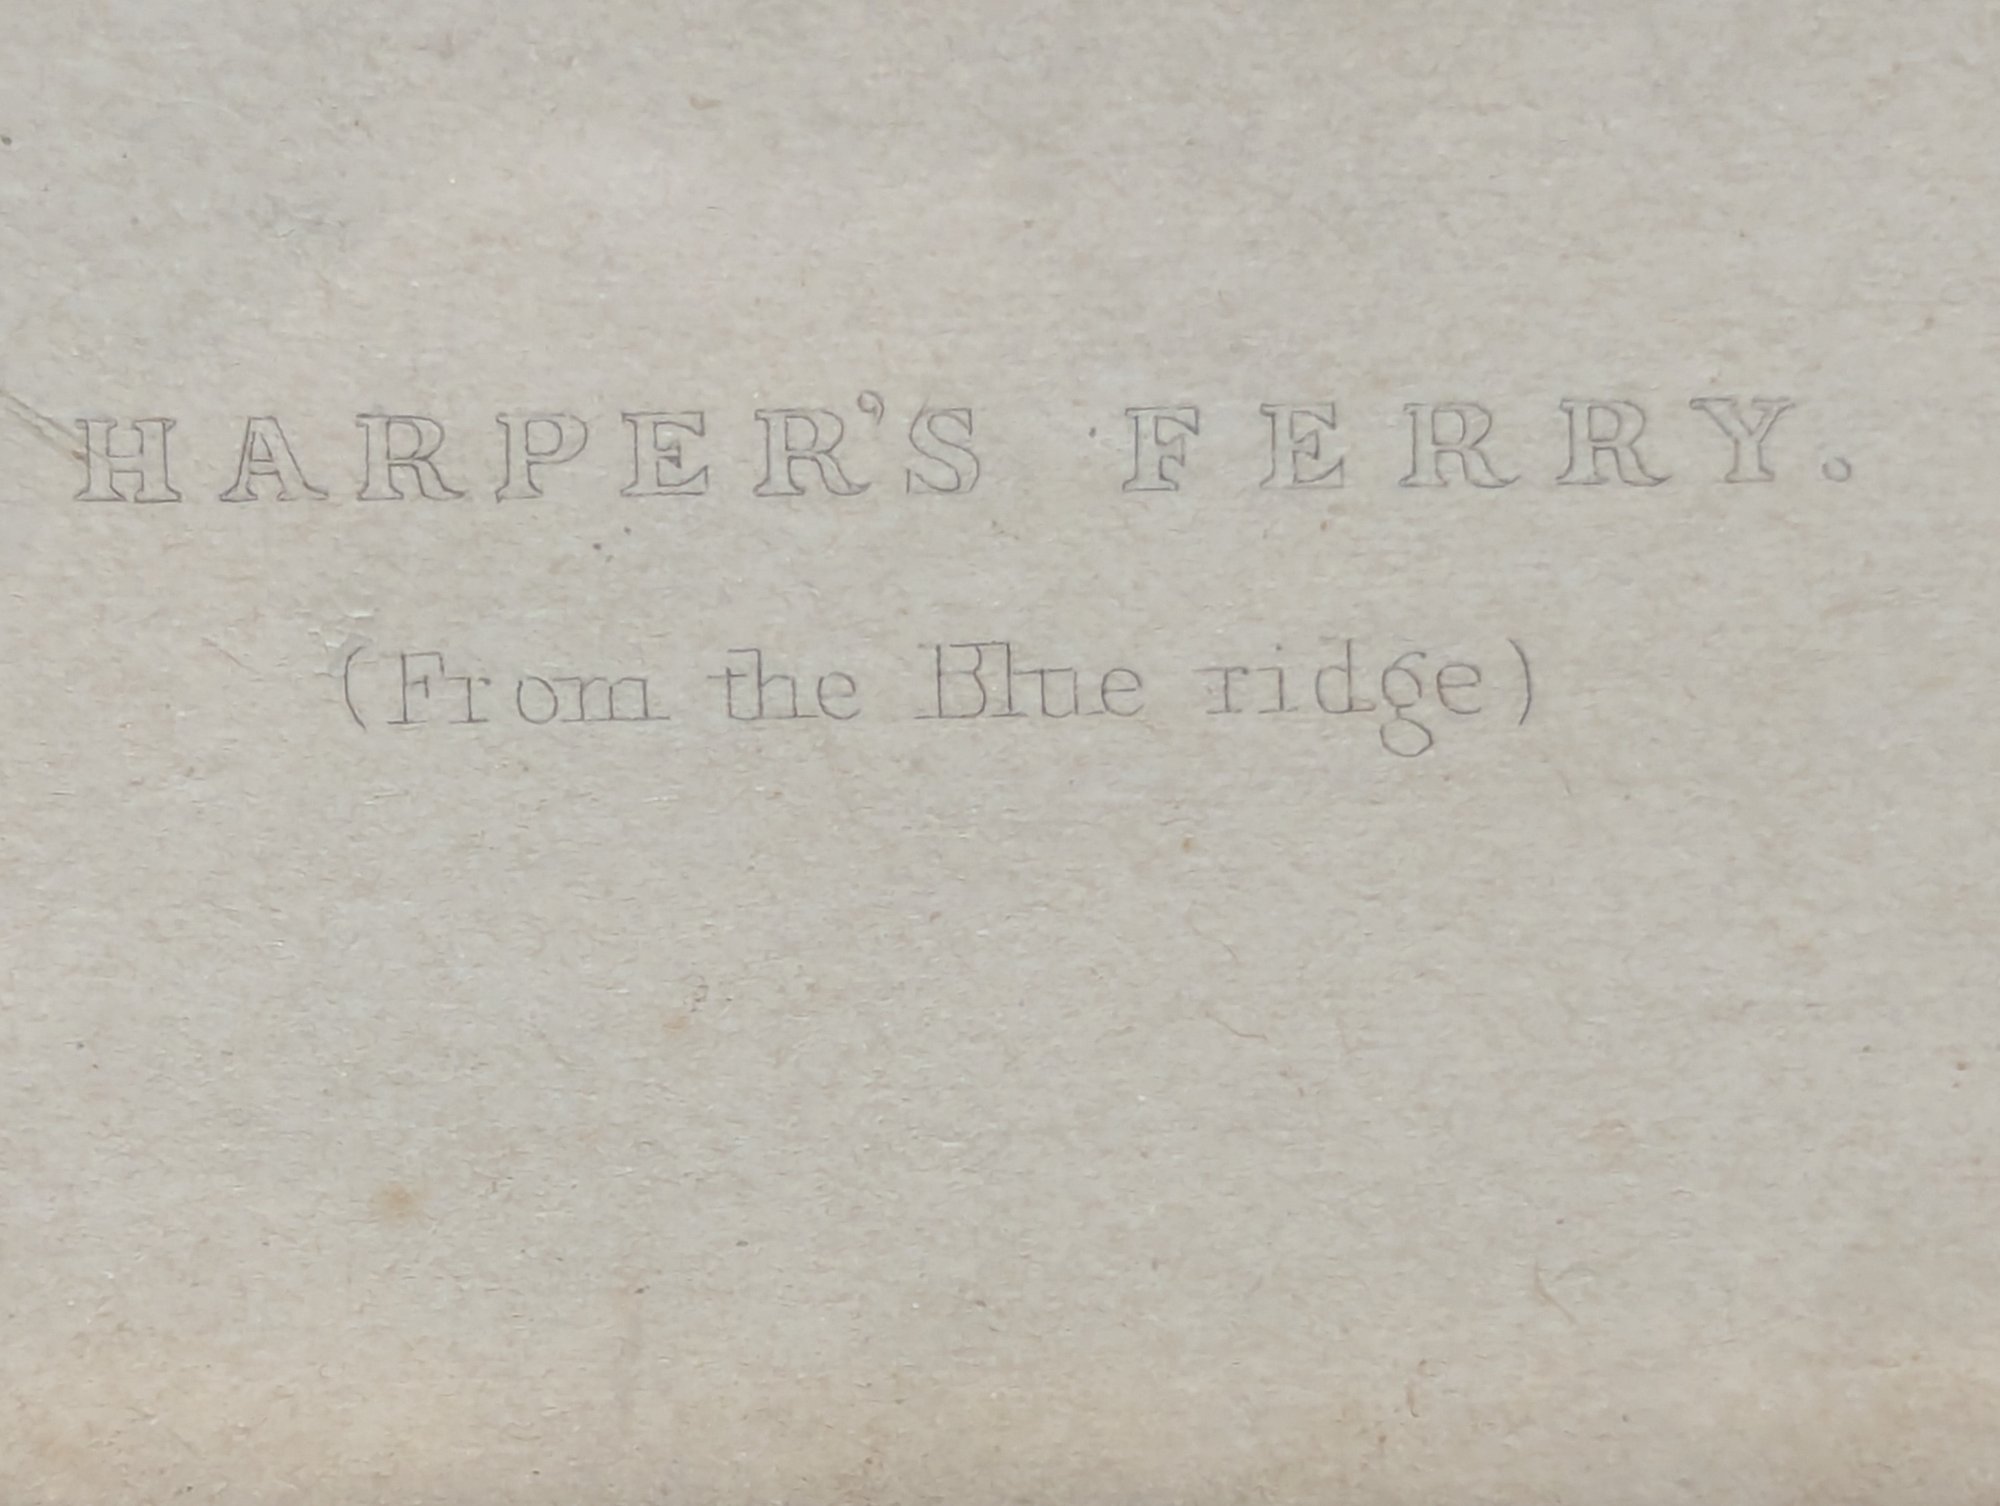 HARPER'S FERRY.
(From the Blue ridge)